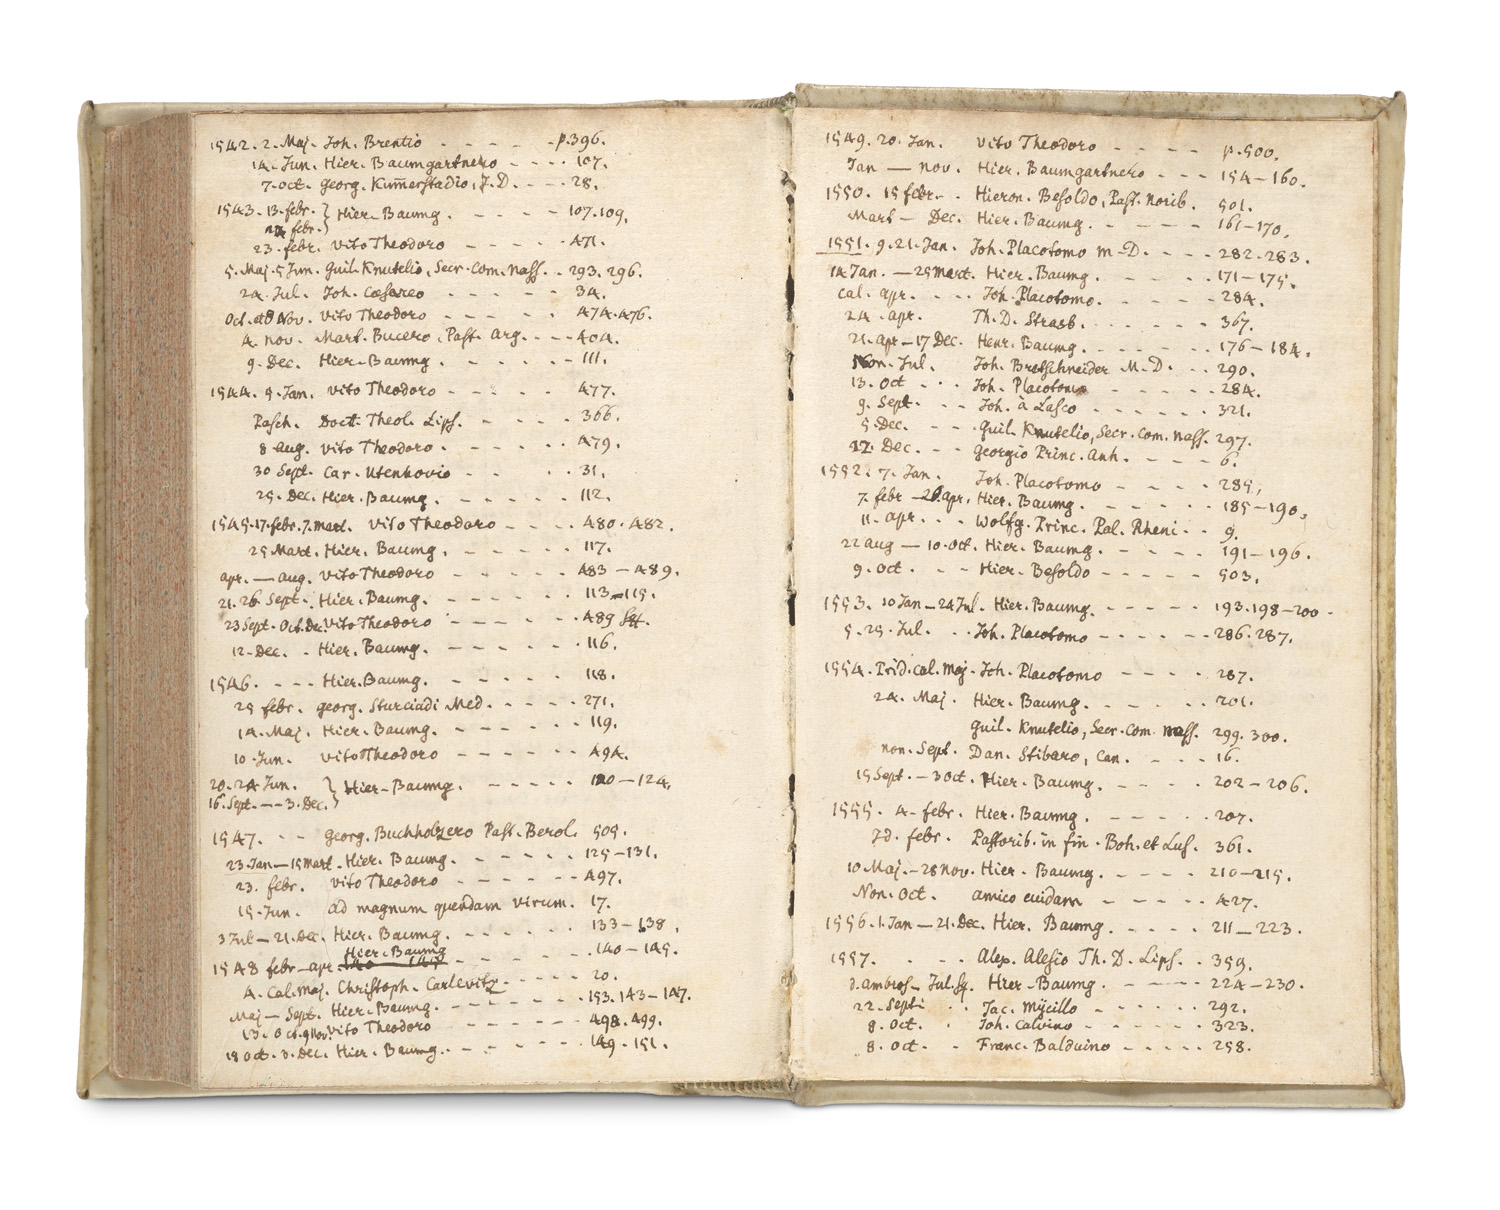 1542. 2. Maj. Joh. Brentio - - - - - p. 396.
14. Jun. Hier. Baumgartnero - - - - 107.
7. oct. georg. Kum̄erstadio, J. D. - - - 28.
1543. 13. febr. } Hier. Baumg. - - - - 107. 109.
febr. }
23. febr. Vito Theodoro - - - - - 471.
5. Maj. 5 Jun. Guil. Knutelio, Secr. Com. nass. - - 293. 296.
24. Jul. Joh. Cæsareo - - - - - 34.
Oct. et 8 Nov. Vito Theodoro - - - - - 474. 476.
4. nov. Mart. Bucero, Past. Arg. - - - - 404.
9. Dec. Hier. Baumg - - - - - - 111.
1544. 9. Jan. Vito Theodoro - - - - - 477.
Pasch. Doct. Theol. Lips. - - - - 366.
8 aug. Vito Theodoro - - - - - 479.
30 Sept. Car. Utenhovio - - - - 31.
25. Dec. Hier. Baumg. - - - - - 112.
1545. 17. febr. 7. mart. Vito Theodoro - - - - 480. 482.
25 Mart. Hier. Baumg. - - - - - - 117.
apr. — aug. Vito Theodoro - - - - - 483 — 489.
21. 26. Sept. Hier. Baumg. - - - - - - 113—115.
23 Sept. Oct. Dec. Vito Theodoro - - - - - 489 sqq.
12. Dec. - Hier. Baumg. - - - - - - 116.
1546. - - - Hier. Baumg. - - - - - - 118.
25 febr. georg. Sturciadi Med. - - - - - 271.
14. Maj. Hier. Baumg. - - - - - - 119.
10. Jun. Vito Theodoro - - - - - 494.
20. 24 Jun. } Hier. Baumg. - - - - - 120 — 124.
16. Sept. — 3. Dec. }
1547. - - georg. Buchholzero Past. Berol. 505.
23. Jan — 15 mart. Hier. Baumg. - - - - - 125 — 131.
23. febr. Vito Theodoro - - - - - 497.
15. Jun. ad magnum quendam virum. 17.
3 Jul — 21. Dec. Hier. Baumg. - - - - - 133 — 138.
Hier. Baumg
1548 febr — apr. - - - - - 140 — 145.
4. Cal. Maj. Christoph. Carlevitz - - - - 20.
Maj — Sept. Hier. Baumg. - - - - - 153. 143 — 147.
13. Oct. 9 Nov. Vito Theodoro - - - - - 498. 499.
18 Oct. 3. Dec. Hier. Baumg. - - - - - 149. 151.
1549. 20. Jan. Vito Theodoro - - - - - p. 500.
Jan — nov. Hier. Baumgartnero - - - 154 — 160.
1550. 15 febr. - Hieron. Besoldo, Past. Norib. 501.
Mart — Dec. Hier. Baumg. - - - - - 161 — 170.
1551. 9. 21. Jan. Joh. Placotomo M. D. - - - - 282. 283.
14 Jan. — 25 mart. Hier. Baumg. - - - - - 171 — 175.
cal. apr. - - - Joh. Placotomo. - - - - - 284.
24. apr. Th. D. Strasb. - - - - - - 367.
21. apr — 17 Dec. Hier. Baumg. - - - - - - 176 — 184.
Non. Jul. Joh. Bretschneider M. D. - - - 290.
13. Oct - - - Joh. Placotomo - - - - - 284.
9. Sept. - - Joh. à Lasco - - - - - - 321.
5. Dec. - - - Guil. Knutelio, Secr. Com. Nass. 297.
17. Dec. - - Georgio Princ. Anh. - - - - 6.
1552. 7. Jan. Joh. Placotomo - - - - 285.
7. febr — 26. apr. Hier. Baumg - - - - - 185 — 190.
11. apr. - - - Wolfg. Princ. Pal. Rheni - - 9.
22 aug — 10. oct. Hier. Baumg. - - - - 191 — 196.
9. oct. - - - Hier. Besoldo - - - - - 503.
1553. 10 Jan — 24 Jul. Hier. Baumg. - - - - - 193. 198 — 200 -
5. 25. Jul. - - Joh. Placotomo - - - - - 286. 287.
1554. Prid. cal. Maj. Joh. Placotomo - - - - 287.
24. Maj. Hier. Baumg. - - - - - 201.
Guil. Knutelio, Secr. Com. nass. 299. 300.
non. Sept. Dan. Stibaro, Can. - - - 16.
15 Sept. — 3 Oct. Hier. Baumg. - - - - 202 — 206.
1555. 4. febr. Hier. Baumg. - - - - - 207.
Jd. febr. Pastorib. in fin. Boh. et Lus. 361.
10. Maj. — 28 nov. Hier. Baumg. - - - - 210 — 215.
Non. Oct. amico cuidam - - - - - 427.
1556. 1. Jan — 21. Dec. Hier. Baumg. - - - - - 211 — 223.
1557. - - - Alex. Alesio Th. D. Lips. - - 359.
d. ambros — Jul. sq. Hier. Baumg. - - - - 224 — 230.
22. Sept. - - Jac. Mÿcillo - - - - - 292.
8. Oct. - Joh. Calvino - - - - - 323.
8. Oct. - Franc. Balduino - - - - - 258.